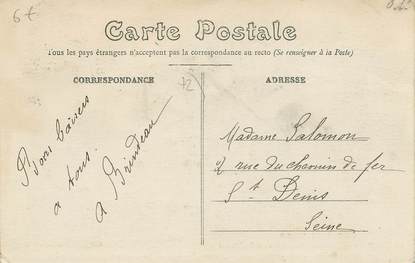 6€
Carte Postale
Tous les pays étrangers n'acceptent pas la correspondance au recto (Se renseigner à la Poste)
CORRESPONDANCE
Bons baisers
a tous
A Brindeau
ADRESSE
Madame Salomon
rue du chemin de fer
St Denis
Seine